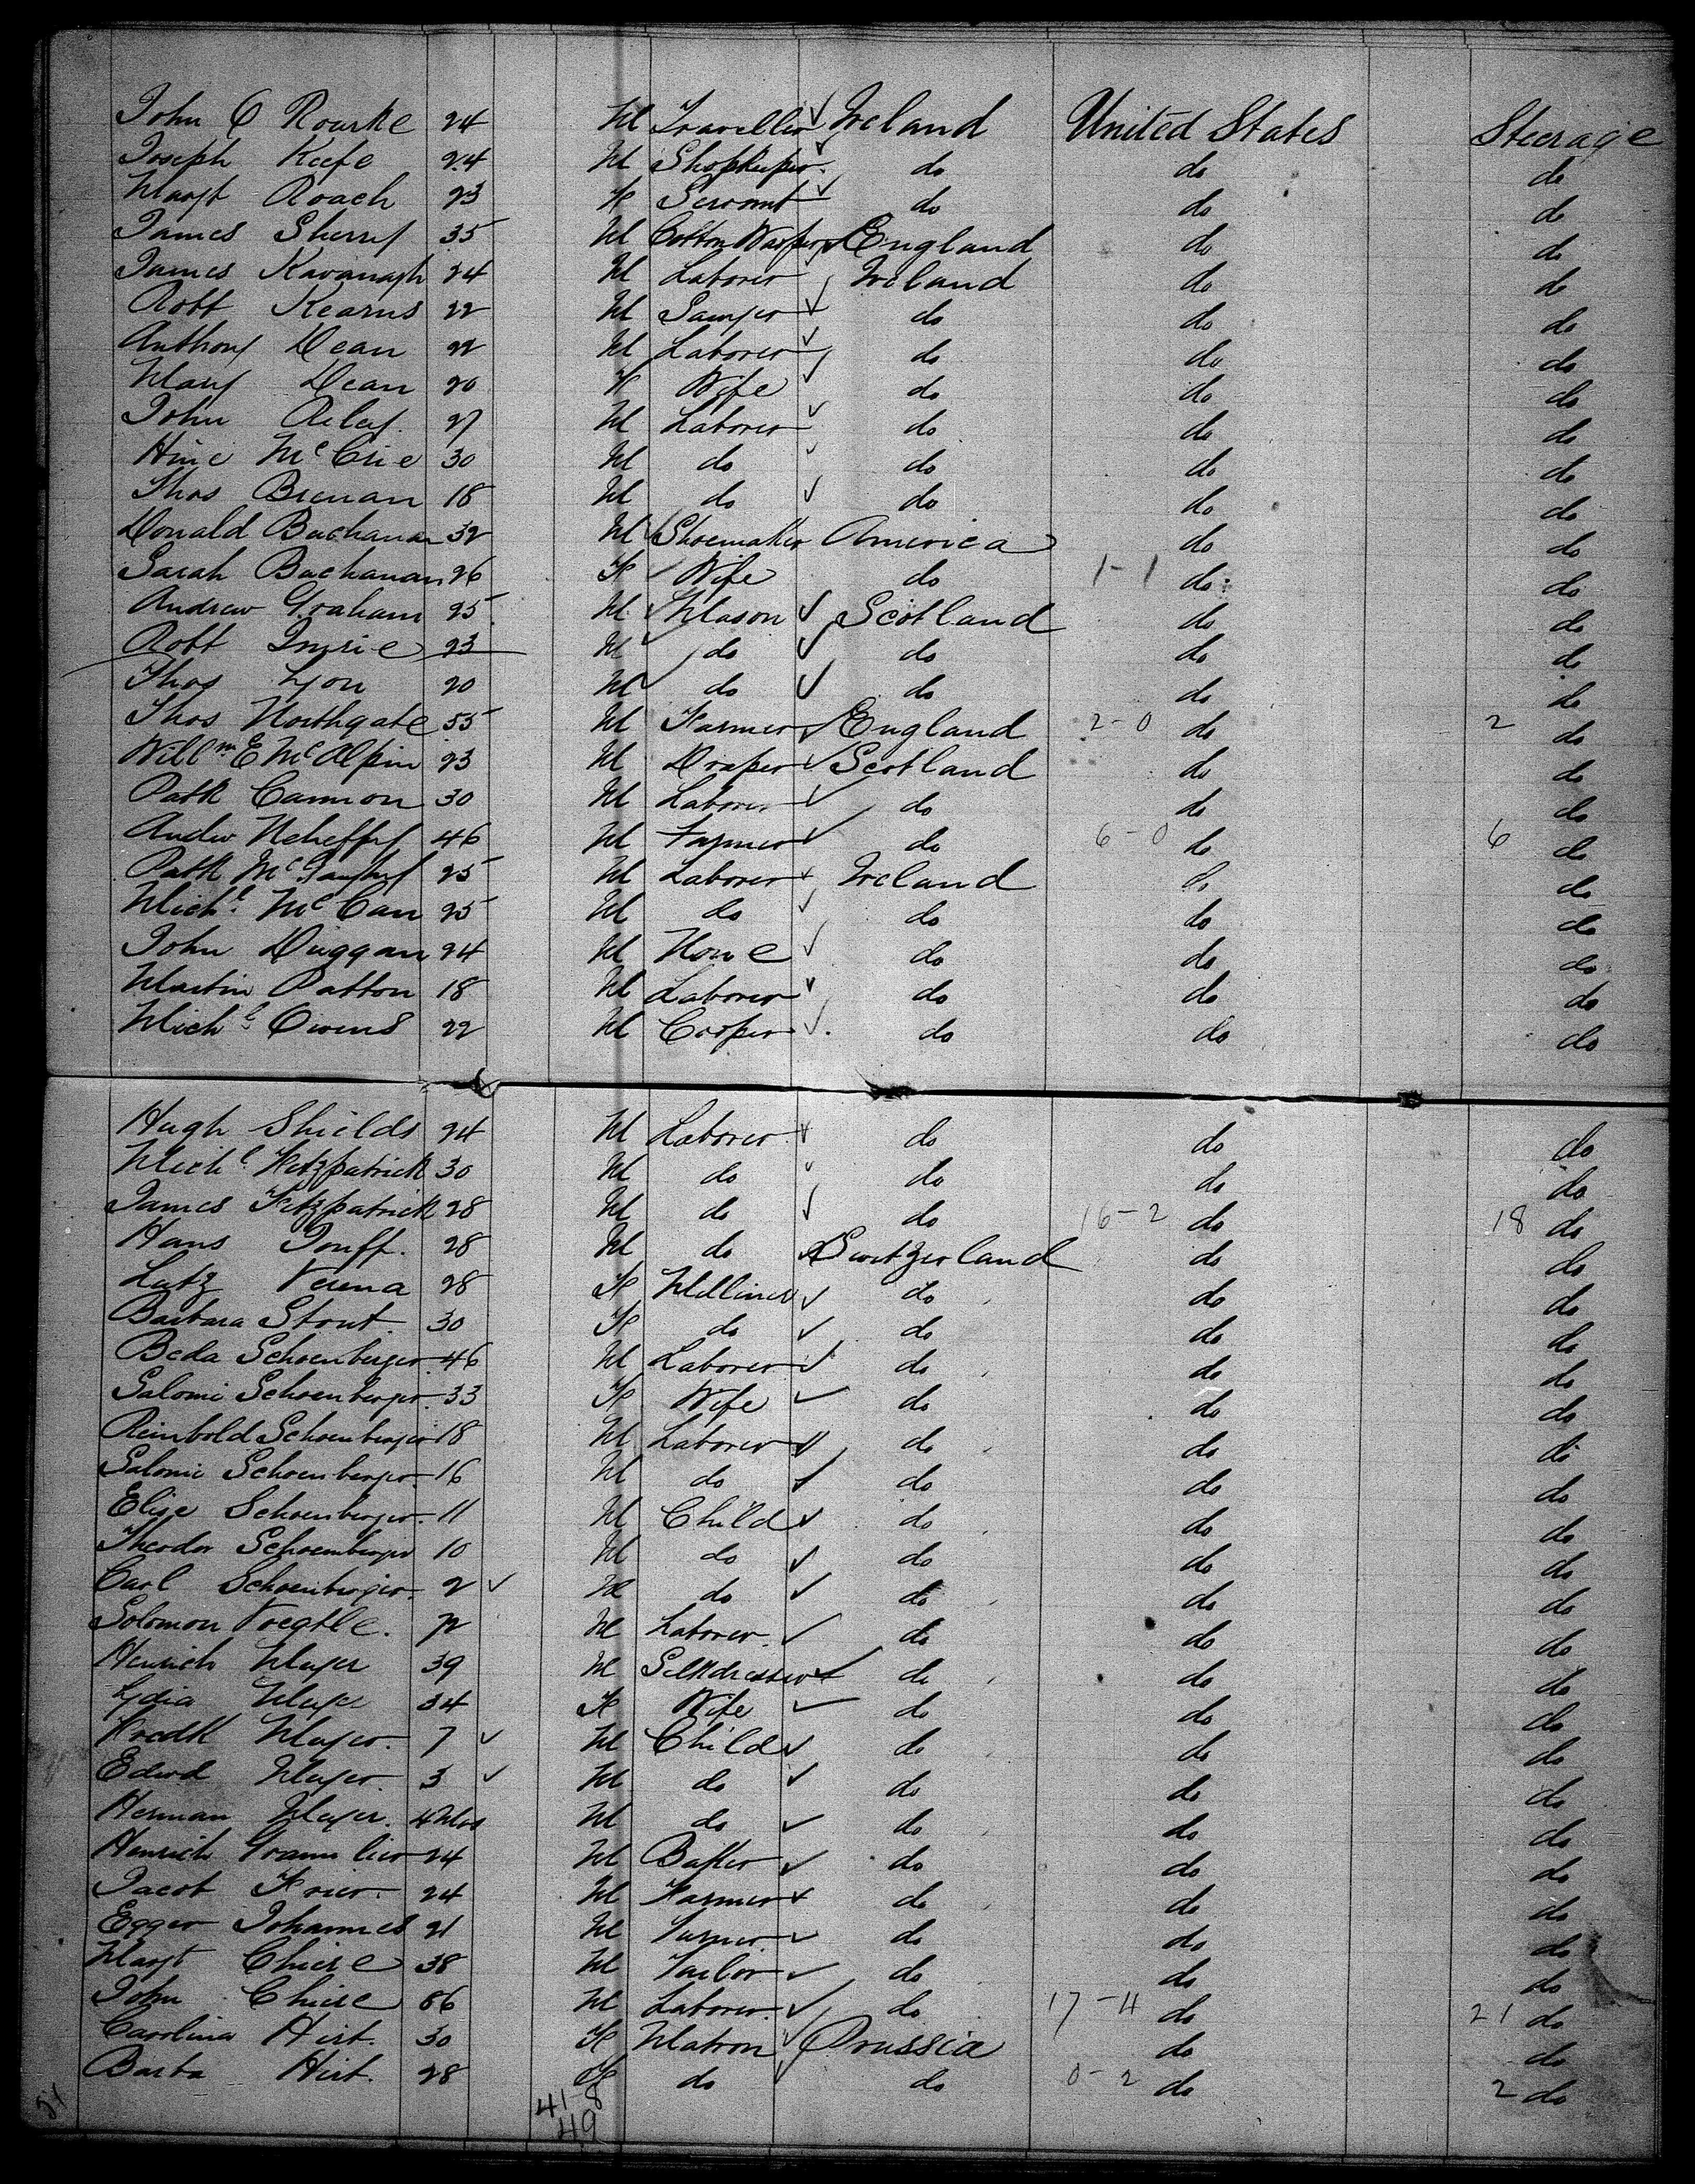 John O Rourke 24 M Traveller ✓ Ireland United States Steerage
Joseph Keefe 24 M Shopkeeper ✓ do do do
Margt Roach 23 F Servant ✓ do do do
James Sherry 35 M Cotton Warper ✓ England do do
James Kavanagh 24 M Laborer Ireland do do
Robt Kearns 22 M Sawyer ✓ do do do
Anthony Dean 22 M Laborer ✓ do do do
Mary Dean 20 F Wife ✓ do do do
John 27 M Laborer ✓ do do do
McCrie 30 M do ✓ do do do
Thos Brenan 18 M do ✓ do do do
Donald Buchanan 32 M ✓ Shoemaker America do do
Sarah Buchanan 26 F ✓ Wife do 1-1 do do
Andrew Graham 25 M ✓ Mason ✓ Scotland do do
Robt Imrie 23 M ✓ do ✓ do do do
Thos Lyon 20 M ✓ do ✓ do do do
Thos Northgate 55 M Farmer ✓ England 2-0 do 2 do
Willm E McAlpin 23 M Draper ✓ Scotland do do
Patk Cannon 30 M Laborer ✓ do do do
Andw 46 M Farmer ✓ do 6-0 do 6 do
Patk 25 M Laborer ✓ Ireland do do
Michl McCan 25 M do ✓ do do do
John Duggan 24 M None ✓ do do do
Martin Patton 18 M Laborer ✓ do do do
Michl Owens 22 M Cooper ✓ do do do
Hugh Shields 24 M Laborer ✓ do do do
Michl Fitzpatrick 30 M do ✓ do do do
James Fitzpatrick 28 M do ✓ do 16-2 do 18 do
Hans 28 M do ✓ Switzerland do do
Lutz Verena 28 F Milliner ✓ do do do
Barbara Stout 30 F do ✓ do do do
Beda Schoenberger 46 M Laborer ✓ do do do
Salomi Schoenberger 33 F Wife ✓ do do do
Reinbold Schoenberger 18 M Laborer ✓ do do do
Salomi Schoenberger 16 M do ✓ do do do
Elise Schoenberger 11 M Child ✓ do do do
Theodor Schoenberger 10 M do ✓ do do do
Carl Schoenberger 2 ✓ M do ✓ do do do
Solomon Voegtle M Laborer ✓ do do do
Heinrich Mayer 39 M Silkdresser ✓ do do do
Lydia Mayer 34 F Wife ✓ do do do
Fredk Mayer 7 ✓ M Child ✓ do do do
Edwd Mayer 3 ✓ M do ✓ do do do
Herman Mayer 4 Mos M do ✓ do do do
Heinrich 24 M Baker ✓ do do do
Jacob Frier 24 M Farmer ✓ do do do
Egger Johannes 21 M Turner ✓ do do do
Margt Chiese 38 M Tailor ✓ do do do
John Chiese M Laborer ✓ do 17-4 do 21 do
Carolina Hirt 30 F Matron ✓ Prussia do do
Barba Hirt 28 F do ✓ do 0-2 do 2 do
51 41-8
49